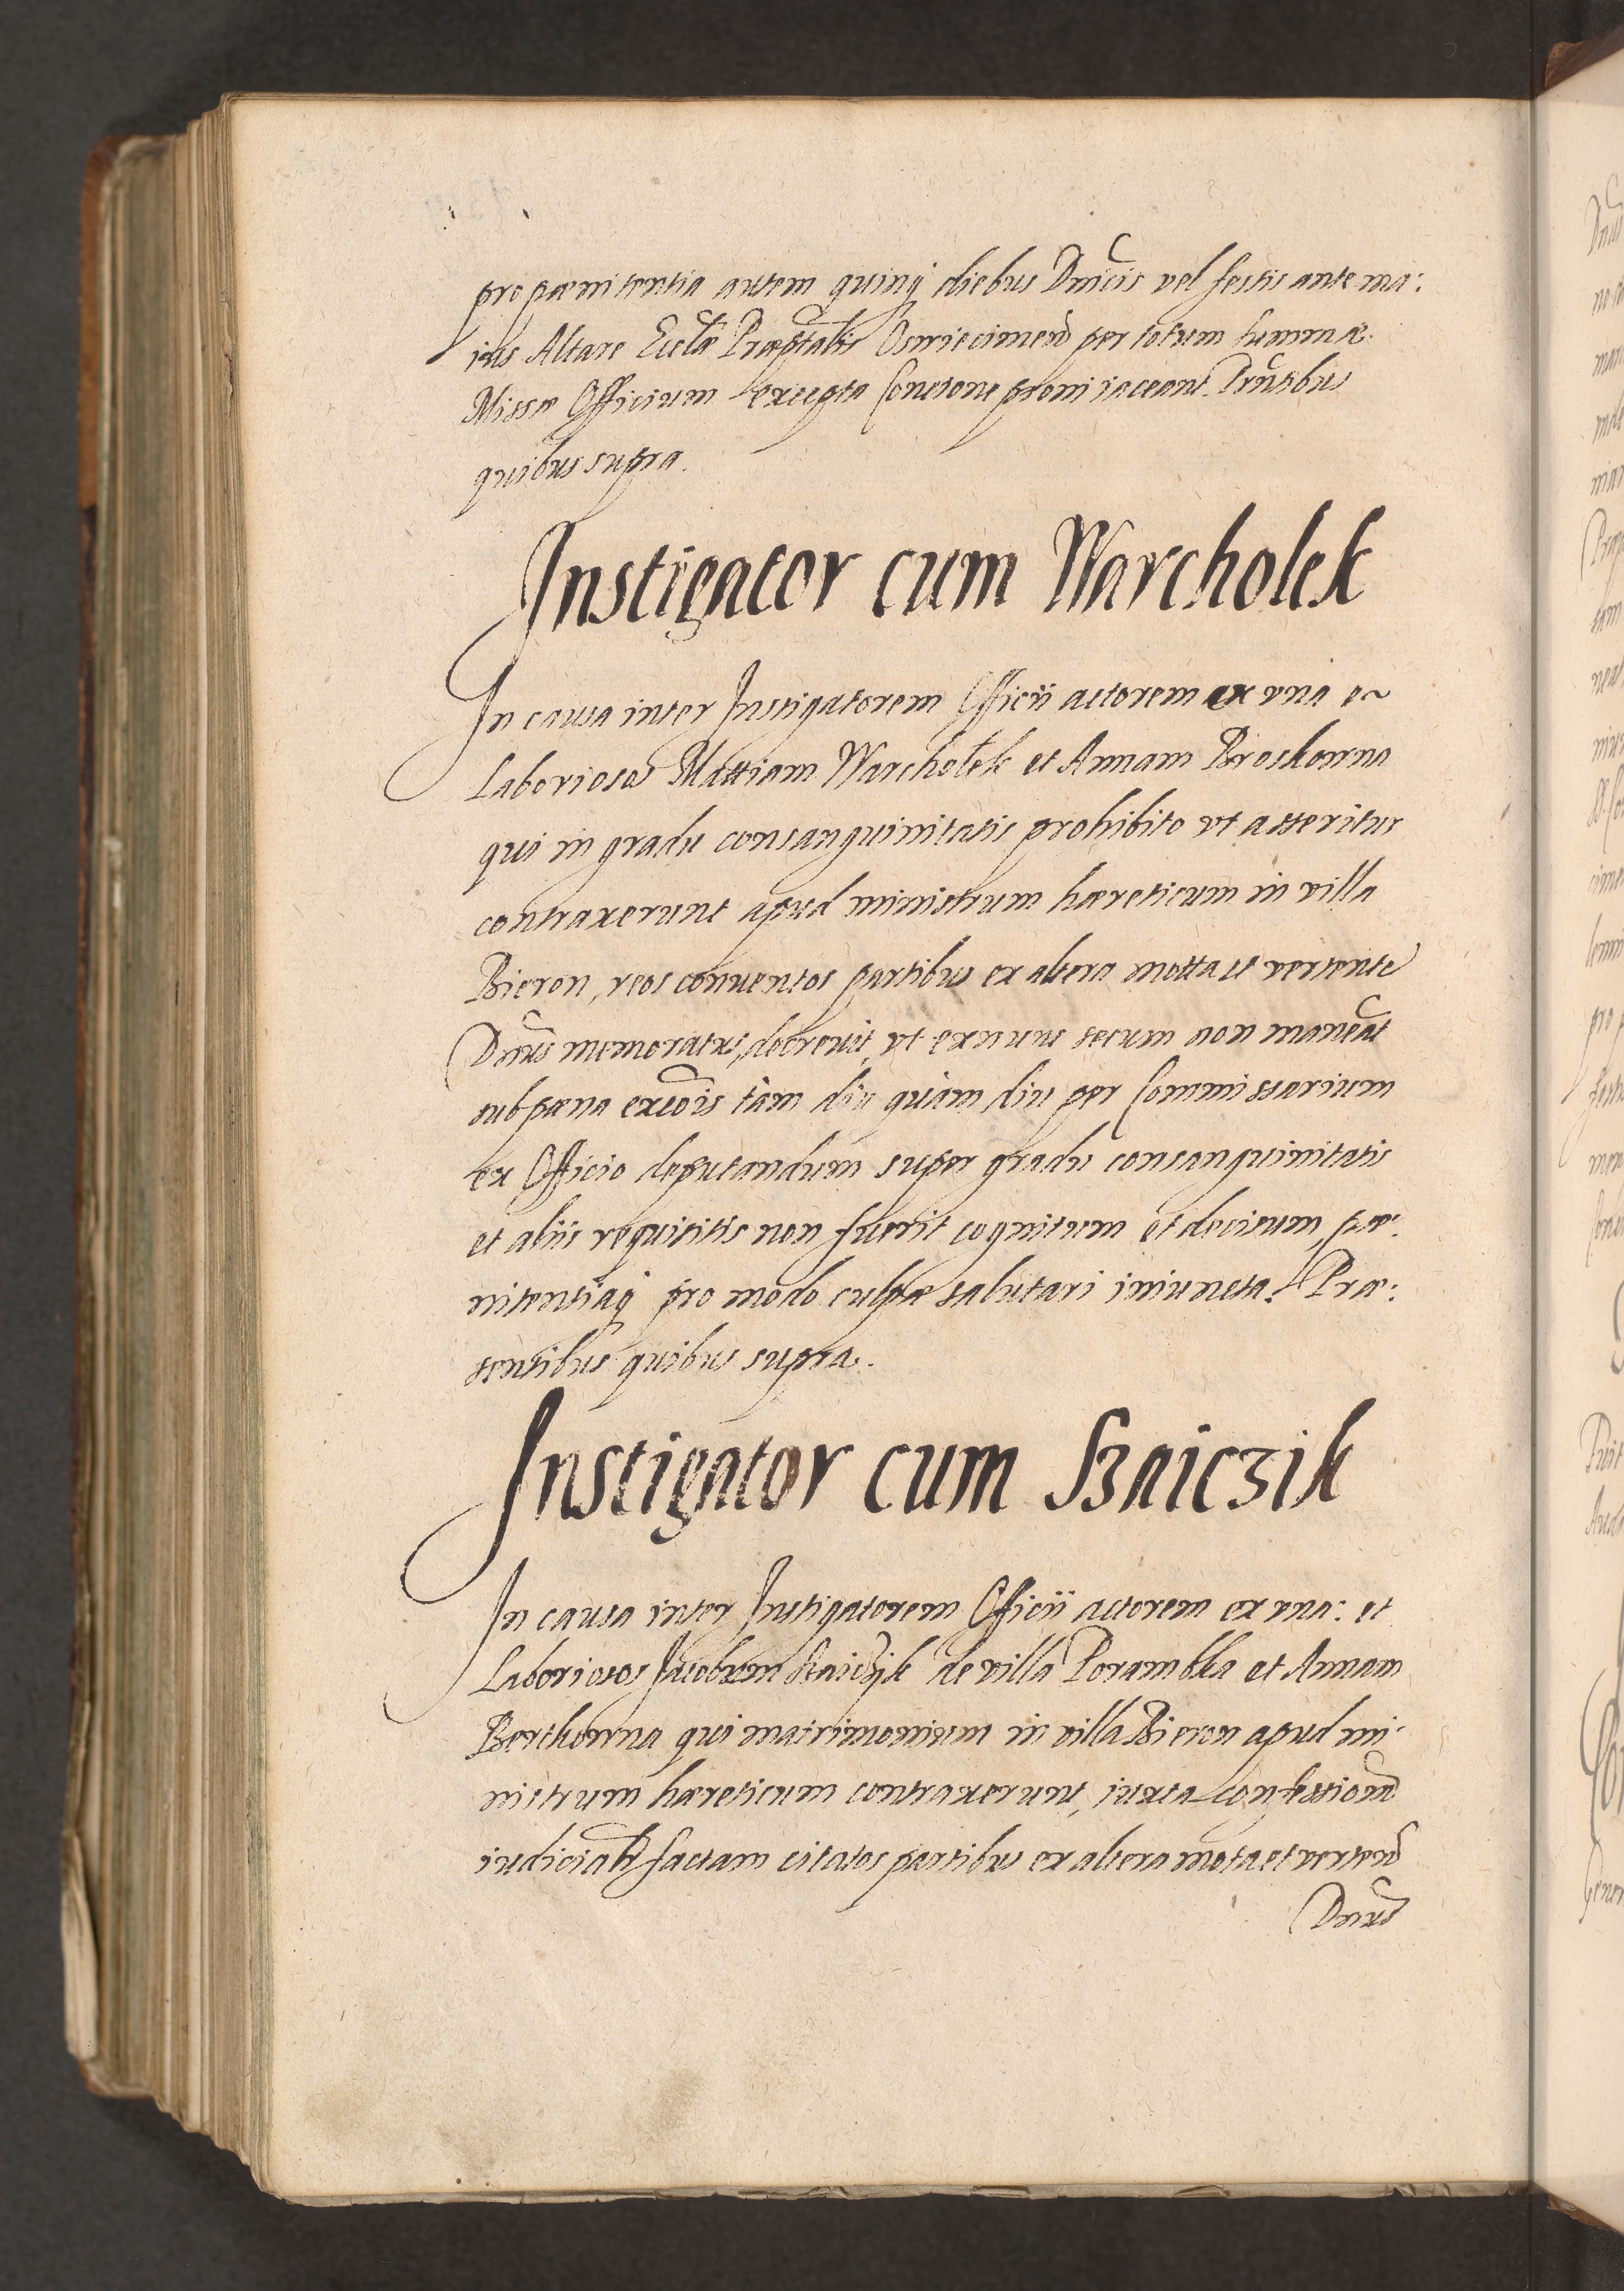 pro pænitentia autem quinq diebus Dnicis vel festis ante ma:
ius Altare Eccłæ Præptalis Osmiecimen per totum summæ
Missæ Officium excepta Concione proni iaceant. Prñtibus
quibus supra.
Instigator cum Warcholek
In causa inter Instigatorem Officii actorem ex vna et
Laboriosos Mattiam Warcholek et Annam Broskowna
qui in gradu consanguinitatis prohibito vt asseritur
contraxerunt apud ministrum hæreticum in villa
Bieron, reos conuentos partibus ex altera motta et vertente
Dnus memoratus, decreuit, vt exnunc secum non maneāt
sub pæna excōis tàm diu quàm diu per Commissarium
ex Officio deputandum super gradu consanguinitatis
et aliis requisitis non fuerit cognitum et decisum, pæ:
nitentiaq pro modo culpæ salutari iniuncta. Præ:
sentibus quibus supra.
Instigator cum Szaiczik
In causa inter Instigatorem Officii actorem ex vna: et
Laboriosos Jacobum Szaiczik de villa Porambka et Annam
Berthowna qui matrimonium in villa Bieron apud mi:
nistrum hæreticum contraxerunt, iuxta confessionē
iudicialr factam citatos partibus ex altera mota et verten
Dnus